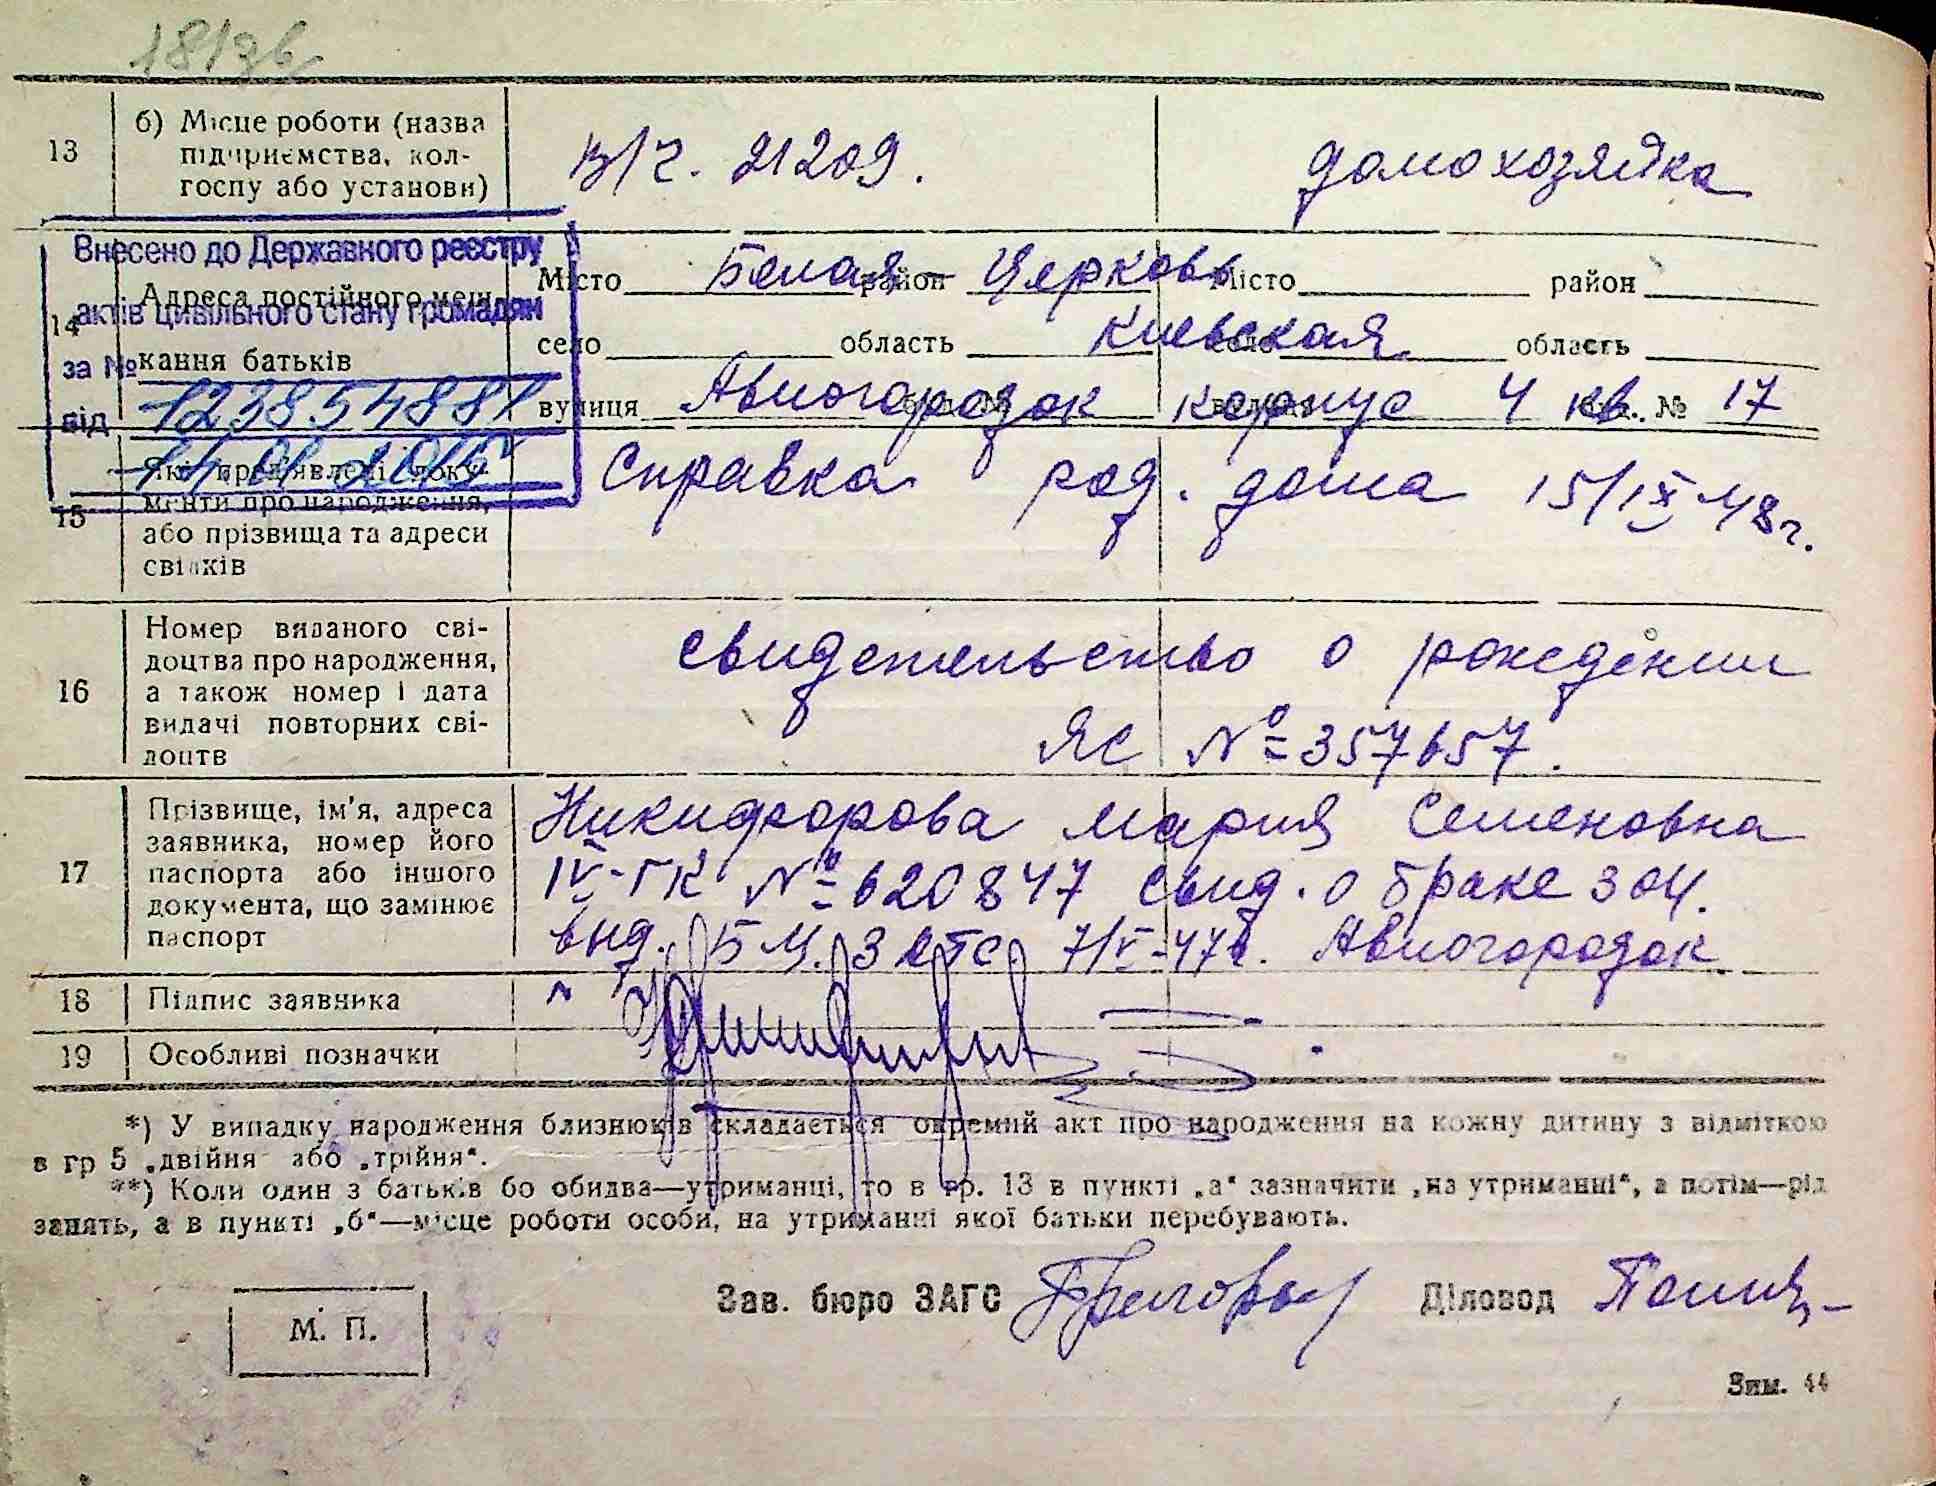 13
б) Місце роботи (назва
підприємства, кол-
госпу або установи)
в/ч. 21209.
домохозяйка
Внесено до Державного реєстру
актів цивільного стану громадян
за №
від
14
Адреса постійного меш-
кання батьків
Місто Белая район Церковь Місто район
село область Киевская село область
вулиця Авиогородок корпус 4 кв. № 17
15
Які пред'явлені доку-
менти про народження,
або прізвища та адреси
свідків
Справка род. дома 15/IX 48г.
16
Номер виданого сві-
доцтва про народження,
а також номер і дата
видачі повторних сві-
доцтв
свидетельство о рождении
ЯС № 357657.
17
Прізвище, ім'я, адреса
заявника, номер його
паспорта або іншого
документа, що замінює
паспорт
Никифорова Мария Семеновна
IV-ГК № 620847 свид. о браке 304.
выд. Б Ц. ЗАГС 7/V-47г. Авиогородок
18
Підпис заявника
19
Особливі позначки
*) У випадку народження близнюків складається окремий акт про народження на кожну дитину з відміткою
в гр 5 „двійня" або „трійня".
**) Коли один з батьків бо обидва—утриманці, то в гр. 13 в пункті „а" зазначити „на утриманні", а потім—рід
занять, а в пункті „б"—місце роботи особи, на утриманні якої батьки перебувають.
М. П.
Зав. бюро ЗАГС
Діловод
Зим. 44